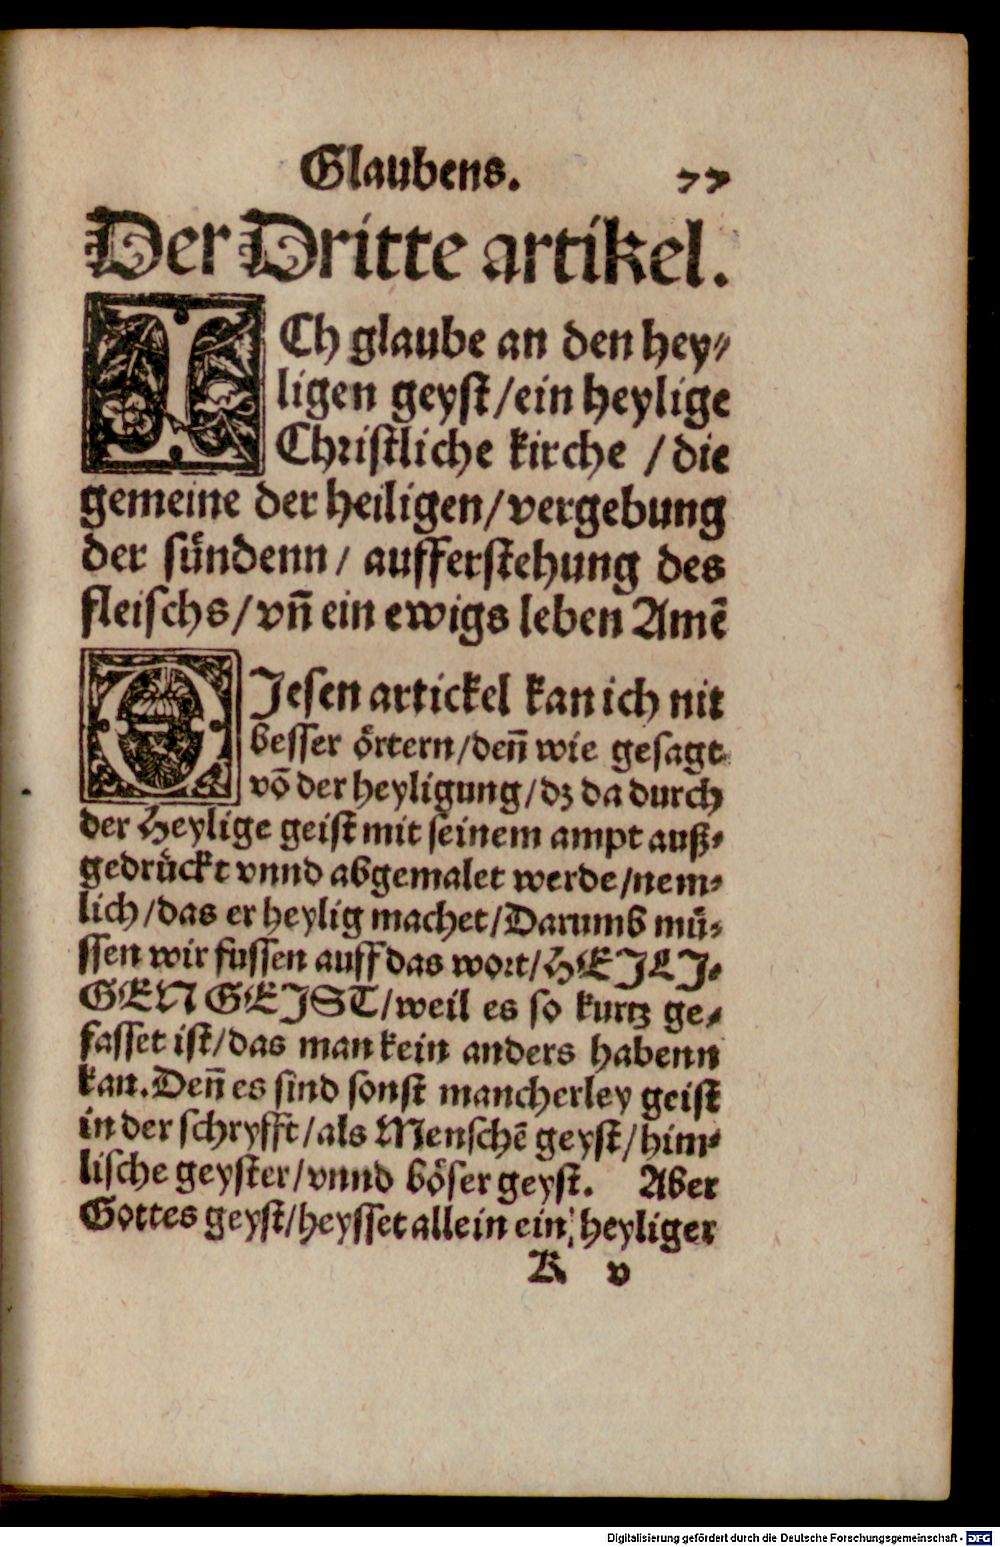 Glaubens. 77
Der Dritte artikel.
ICh glaube an den hey⸗
ligen geyst/ein heylige
Christliche kirche /die
gemeine der heiligen/vergebung
der sündenn/ aufferstehung des
fleischs/vn̄ ein ewigs leben Amē
DJesen artickel kan ich nit
besser örtern/den̄ wie gesagt
vō der heyligung/dz da durch
der Heylige geist mit seinem ampt auß⸗
gedrückt vnnd abgemalet werde/nem⸗
lich/das er heylig machet/Darumb mü⸗
ssen wir fussen auff das wort/HEJLJ⸗
GEN GEJST/weil es so kurtz ge⸗
fasset ist/das man kein anders habenn
kan.Den̄ es sind sonst mancherley geist
in der schryfft/als Menschē geyst/him⸗
lische geyster/vnnd böser geyst. Aber
Gottes geyst/heysset allein ein heyliger
K v
Digitalisierung gefördert durch die Deutsche Forschungsgemeinschaft - DFG